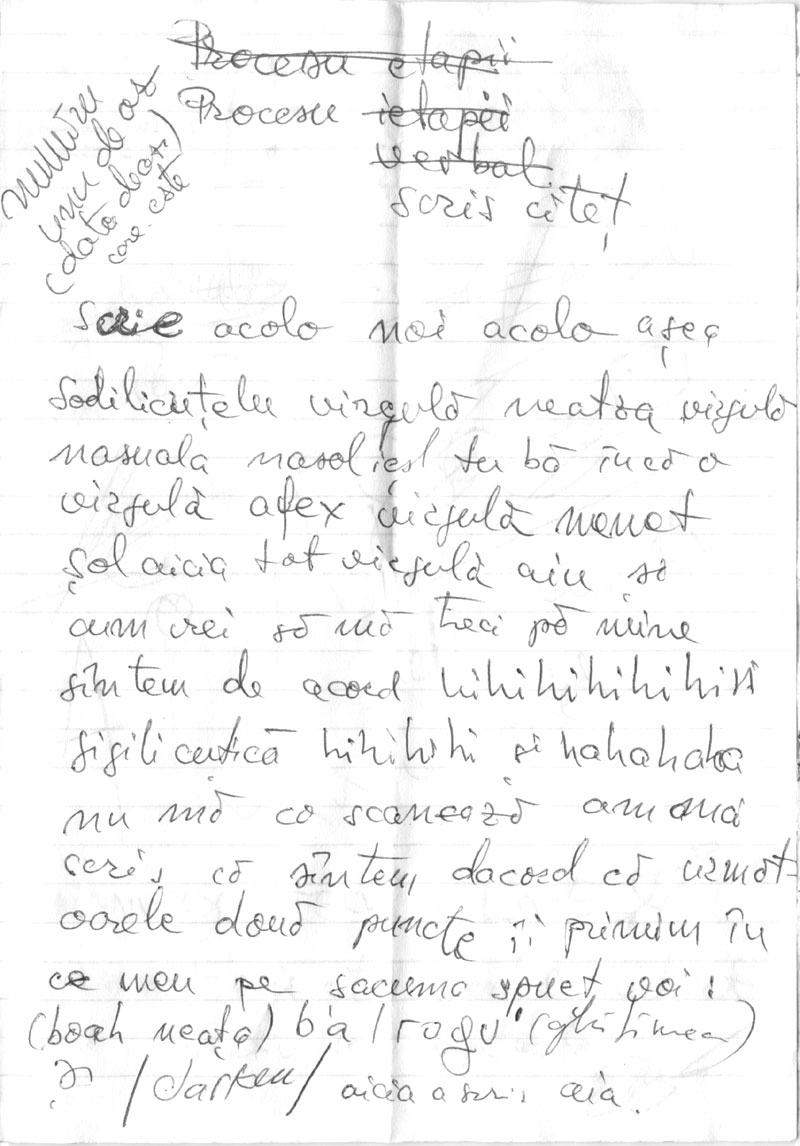 Procesu etapii
Procesu ietapii
verbal
scris citeț
număru
unu de os
(data de azi)
care este
scrie acolo noi acolo așea
Sodilicuțelu virgulă neatza virgulă
nasuala nasol iesl tu bă încă o
virgulă apex virgulă nenot
șol aicia tot virgulă aiu și
cum vrei să mă treci pă mine
sîntem de acord hihihihihihihi
sigiliceutică hihihihi și hahahaha
nu mă ca scanează am
scris că sîntem dacord că următ-
oarele două puncte îi primim în
ce meu pe sacuma spuet voi :
(boah neața) b'a / rogu' (
și / darken / aicia a scris aia.